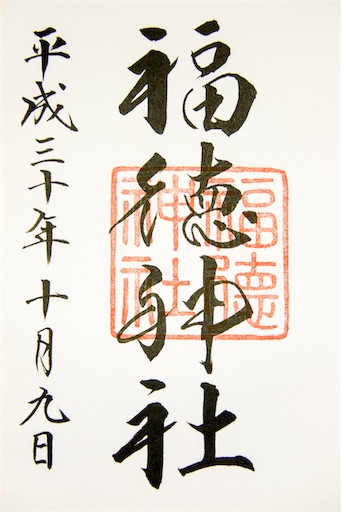 福徳神社
福徳神社
平成三十年十月九日